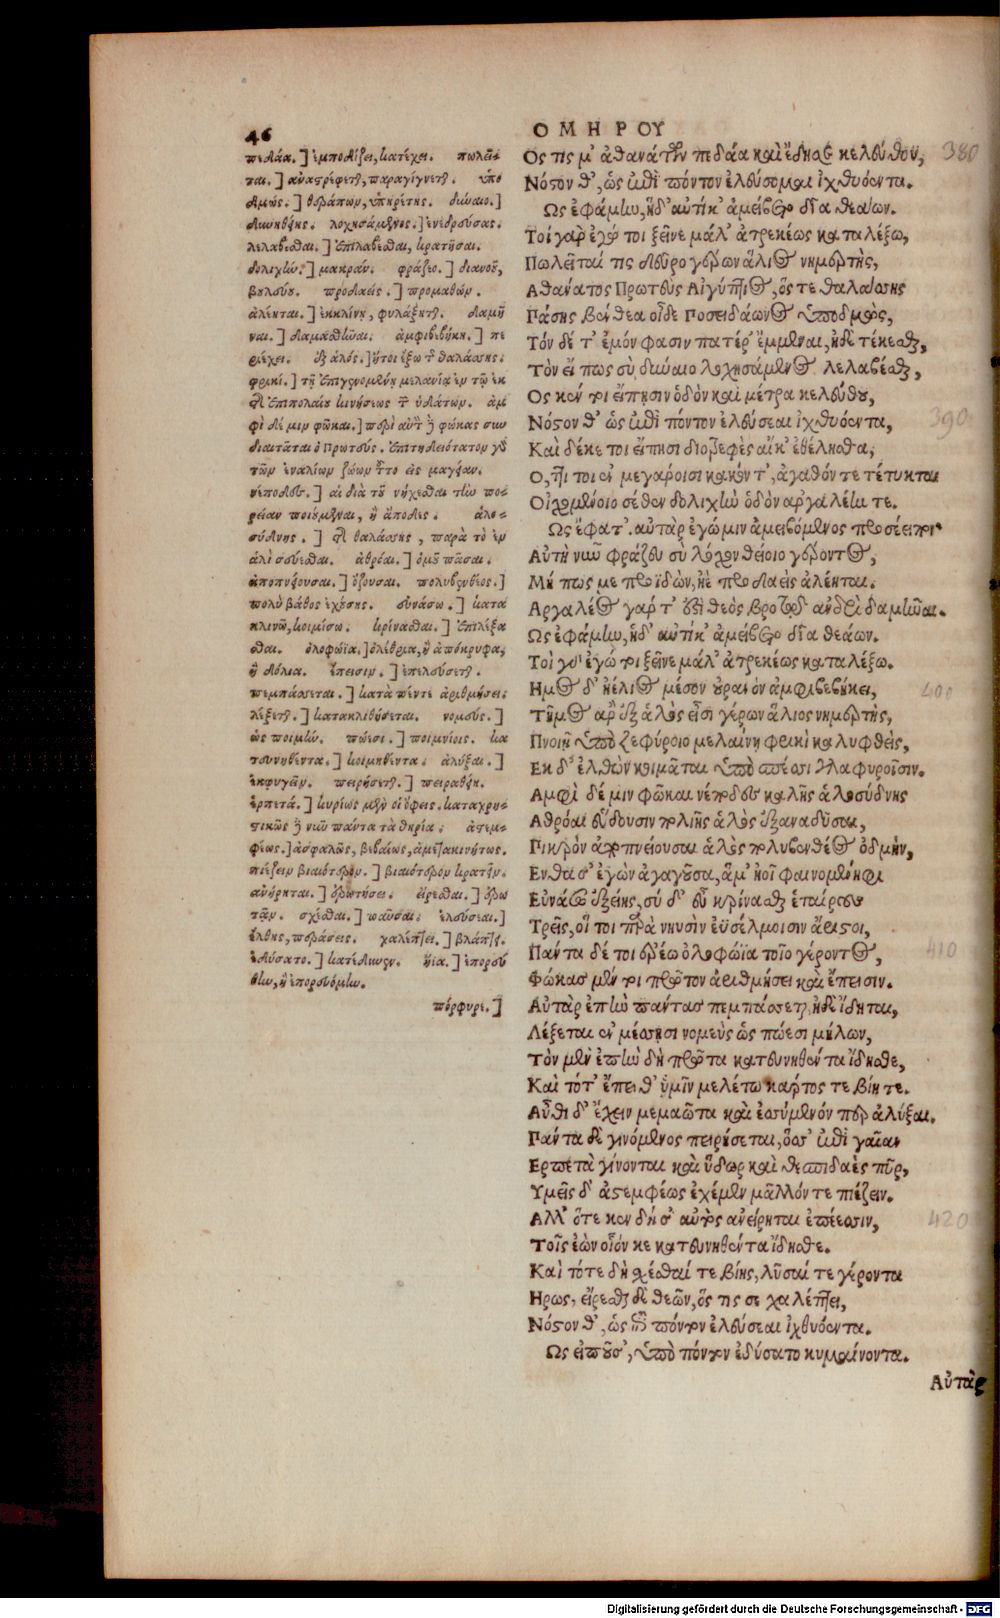 46
ΟΜΗΡΟΥ
πεδάα.] ἐμποδίζει, κατέχει. πωλεῖ-
ται.] ἀναστρέφεται, παραγίγνεται. ὑπο
δμώς.] θεράπων, ὑπηρέτης. δύναιο.]
δυνηθείης. λοχησάμενος.] ἐνεδρεύσας.
λελαβέσθαι.] ἐπιλαβέσθαι, κρατῆσαι.
δολιχὴν.] μακράν. φράζεο.] διανοῦ,
βουλεύου. προδαείς.] προμαθών.
ἀλέηται.] ἐκκλίνῃ, φυλάξηται. δαμῆ
ναι.] δαμασθῆναι. ἀμφιβεβήκη.] πε
ριέχει. ἐξ ἁλός.] ἤτοι ἔξω τῆς θαλάσσης.
φρικί.] τῇ ἐπιγενομένῃ μελανίᾳ ἐν τῷ ἐκ
τῆς ἐπιπολαίου κινήσεως τῶν ὑδάτων. ἀμ
φὶ δέ μιν φῶκαι.] περὶ αὐτὸν αἱ φώκας συν
διαιτᾶται ὁ Πρωτεύς. ἐπιτηδειότατον γὰρ
τῶν ἐναλίων ζώων τοῦτο εἰς μαγείαν.
νέποδες.] αἱ διὰ τοῦ νήχεσθαι τὴν πο-
ρείαν ποιούμεναι, ἢ ἄποδες. ἁλο-
σύδνης.] τῆς θαλάσσης, παρὰ τὸ ἐν
ἁλὶ σεύεσθαι. ἀθρόαι.] ὁμοῦ πᾶσαι.
ἀποπνείουσαι.] ὄζουσαι. πολυβενθέος.]
πολὺ βάθος ἐχούσης. εὐνάσω.] κατα
κλινῶ, κοιμίσω. κρίνασθαι.] ἐπιλέξα
σθαι. ὀλοφώϊα.] ὀλέθρια, ἢ ἀπόκρυφα,
ἢ δόλια. ἔπεισιν.] ἐπελεύσεται.
πεμπάσεται.] κατὰ πέντε ἀριθμήσει.
λέξεται.] κατακλιθήσεται. νομεύς.]
ὡς ποιμὴν. πώεσι.] ποιμνίοις. κα
τευνηθέντα.] κοιμηθέντα. ἀλύξαι.]
ἐκφυγεῖν. πειρήσεται.] πειραθήσε.
ἑρπετά.] κυρίως μὲν οἱ ὄφεις. καταχρη-
στικῶς δὲ νῦν πάντα τὰ θηρία. ἀστεμ-
φέως.] ἀσφαλῶς, βεβαίως, ἀμετακινήτως.
πιέζειν βιαιότερον.] βιαιότερον κρατεῖν.
ἀνείρηται.] ἐρωτήσει. εἴρεσθαι.] ἐρω
τᾶν. σχέσθαι.] παῦσαι. ἐλεύσεαι.]
ἔλθης, περάσεις. χαλέπτει.] βλάπτει.
ἐδύσατο.] κατέδυνεν. ἤϊα.] ἐπορεύ
θην, ἢ ἐπορευόμην.
πόρφυρε.]
Ὅς τίς μ' ἀθανάτων πεδάα καὶ ἔδησε κελεύθου, 380
Νόστον θ', ὡς ἐπὶ πόντον ἐλεύσομαι ἰχθυόεντα.
Ὣς ἐφάμην, ἡ δ' αὐτίκ' ἀμείβετο δῖα θεάων.
Τοὶ γὰρ ἐγώ τοι ξεῖνε μάλ' ἀτρεκέως καταλέξω,
Πωλεῖταί τις δεῦρο γέρων ἅλιος νημερτὴς,
Ἀθάνατος Πρωτεὺς Αἰγύπτιος, ὅς τε θαλάσσης
Πάσης βένθεα οἶδε Ποσειδάωνος ὑποδμὼς,
Τόν δέ τ' ἐμόν φασιν πατέρ' ἔμμεναι, ἠδὲ τεκέσθαι,
Τὸν εἴ πως σὺ δύναιο λοχησάμενος λελαβέσθαι,
Ὅς κέν τοι εἴπησιν ὁδὸν καὶ μέτρα κελεύθου,
Νόστον θ' ὡς ἐπὶ πόντον ἐλεύσεαι ἰχθυόεντα, 390
Καὶ δέ κέ τοι εἴπησι διοτρεφὲς αἴκ' ἐθέλησθα,
Ὅ,τι τοι ἐν μεγάροισι κακόν τ', ἀγαθόν τε τέτυκται
Οἰχομένοιο σέθεν δολιχὴν ὁδὸν ἀργαλέην τε.
Ὣς ἔφατ'. αὐτὰρ ἐγώ μιν ἀμειβόμενος προσέειπον
Αὐτὴ νῦν φράζευ σὺ λόχον θείοιο γέροντος,
Μή πώς με προϊδὼν, ἠὲ προδαεὶς ἀλέηται.
Ἀργαλέος γάρ τ' ἐστὶ θεὸς βροτῷ ἀνδρὶ δαμῆναι.
Ὣς ἐφάμην, ἡ δ' αὐτίκ' ἀμείβετο δῖα θεάων.
Τοὶ γὰρ ἐγώ τοι ξεῖνε μάλ' ἀτρεκέως καταλέξω.
Ἦμος δ' ἠέλιος μέσον οὐρανὸν ἀμφιβεβήκει, 400
Τῆμος ἄρ' ἐξ ἁλὸς εἶσι γέρων ἅλιος νημερτὴς,
Πνοιῇ ὑπὸ ζεφύροιο μελαίνῃ φρικὶ καλυφθεὶς,
Ἐκ δ' ἐλθὼν κοιμᾶται ὑπὸ σπέσσι γλαφυροῖσιν.
Ἀμφὶ δέ μιν φῶκαι νέποδες καλῆς ἁλοσύδνης
Ἀθρόαι εὕδουσιν πολιῆς ἁλὸς ἐξαναδῦσαι,
Πικρὸν ἀποπνείουσαι ἁλὸς πολυβενθέος ὀδμὴν,
Ἔνθα σ' ἐγὼν ἀγαγοῦσα, ἅμ' ἠοῖ φαινομένηφι
Εὐνάσω ἑξείης, σὺ δ' εὖ κρίνασθαι ἑταίρους
Τρεῖς, οἵ τοι παρὰ νηυσὶν ἐϋσέλμοισιν ἄριστοι,
Πάντα δέ τοι ἐρέω ὀλοφώϊα τοῖο γέροντος, 410
Φώκας μέν τοι πρῶτον ἀριθμήσει καὶ ἔπεισιν.
Αὐτὰρ ἐπὴν πάντας πεμπάσσεται, ἠδὲ ἴδηται,
Λέξεται ἐν μέσσῃσι νομεὺς ὣς πώεσι μήλων,
Τὸν μὲν ἐπὴν δὴ πρῶτα κατευνηθέντα ἴδησθε,
Καὶ τότ' ἔπειθ' ὑμῖν μελέτω κάρτος τε βίη τε.
Αὖθι δ' ἔχειν μεμαῶτα καὶ ἐσσύμενόν περ ἀλύξαι.
Πάντα δὲ γινόμενος πειρήσεται, ὅσσ' ἐπὶ γαῖαν
Ἑρπετὰ γίνονται καὶ ὕδωρ καὶ θεσπιδαὲς πῦρ,
Ὑμεῖς δ' ἀστεμφέως ἐχέμεν μᾶλλόν τε πιέζειν.
Ἀλλ' ὅτε κεν δή σ' αὐτὸς ἀνείρηται ἐπέεσσιν, 420
Τοῖς ἐὼν οἷόν κε κατευνηθέντα ἴδησθε.
Καὶ τότε δὴ σχέσθαί τε βίης, λῦσαί τε γέροντα
Ἥρως, εἴρεσθαι δὲ θεῶν, ὅς τίς σε χαλέπτει,
Νόστον θ', ὡς ἐπὶ πόντον ἐλεύσεαι ἰχθυόεντα.
Ὣς εἰποῦσ', ὑπὸ πόντον ἐδύσατο κυμαίνοντα.
Αὐτὰρ
Digitalisierung gefördert durch die Deutsche Forschungsgemeinschaft - DFG